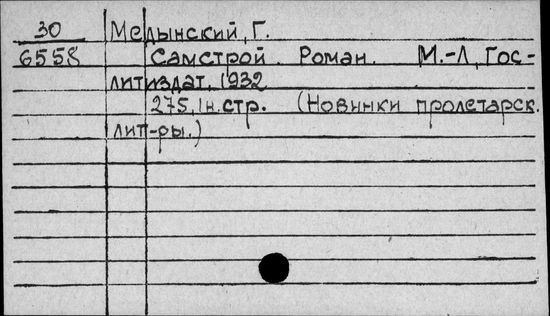 30 Медынский, Г.
6558 Самстрой. Роман. М.-Л, Гос-
литиздат, 1932
275, 1н.стр. (Новинки пролетарск.
лит-ры.)